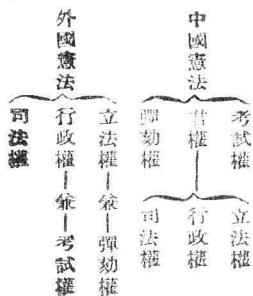 中國憲法
考試權
君權
立法權
行政權
司法權
彈劾權
外國憲法
立法權—兼—彈劾權
行政權—兼—考試權
司法權